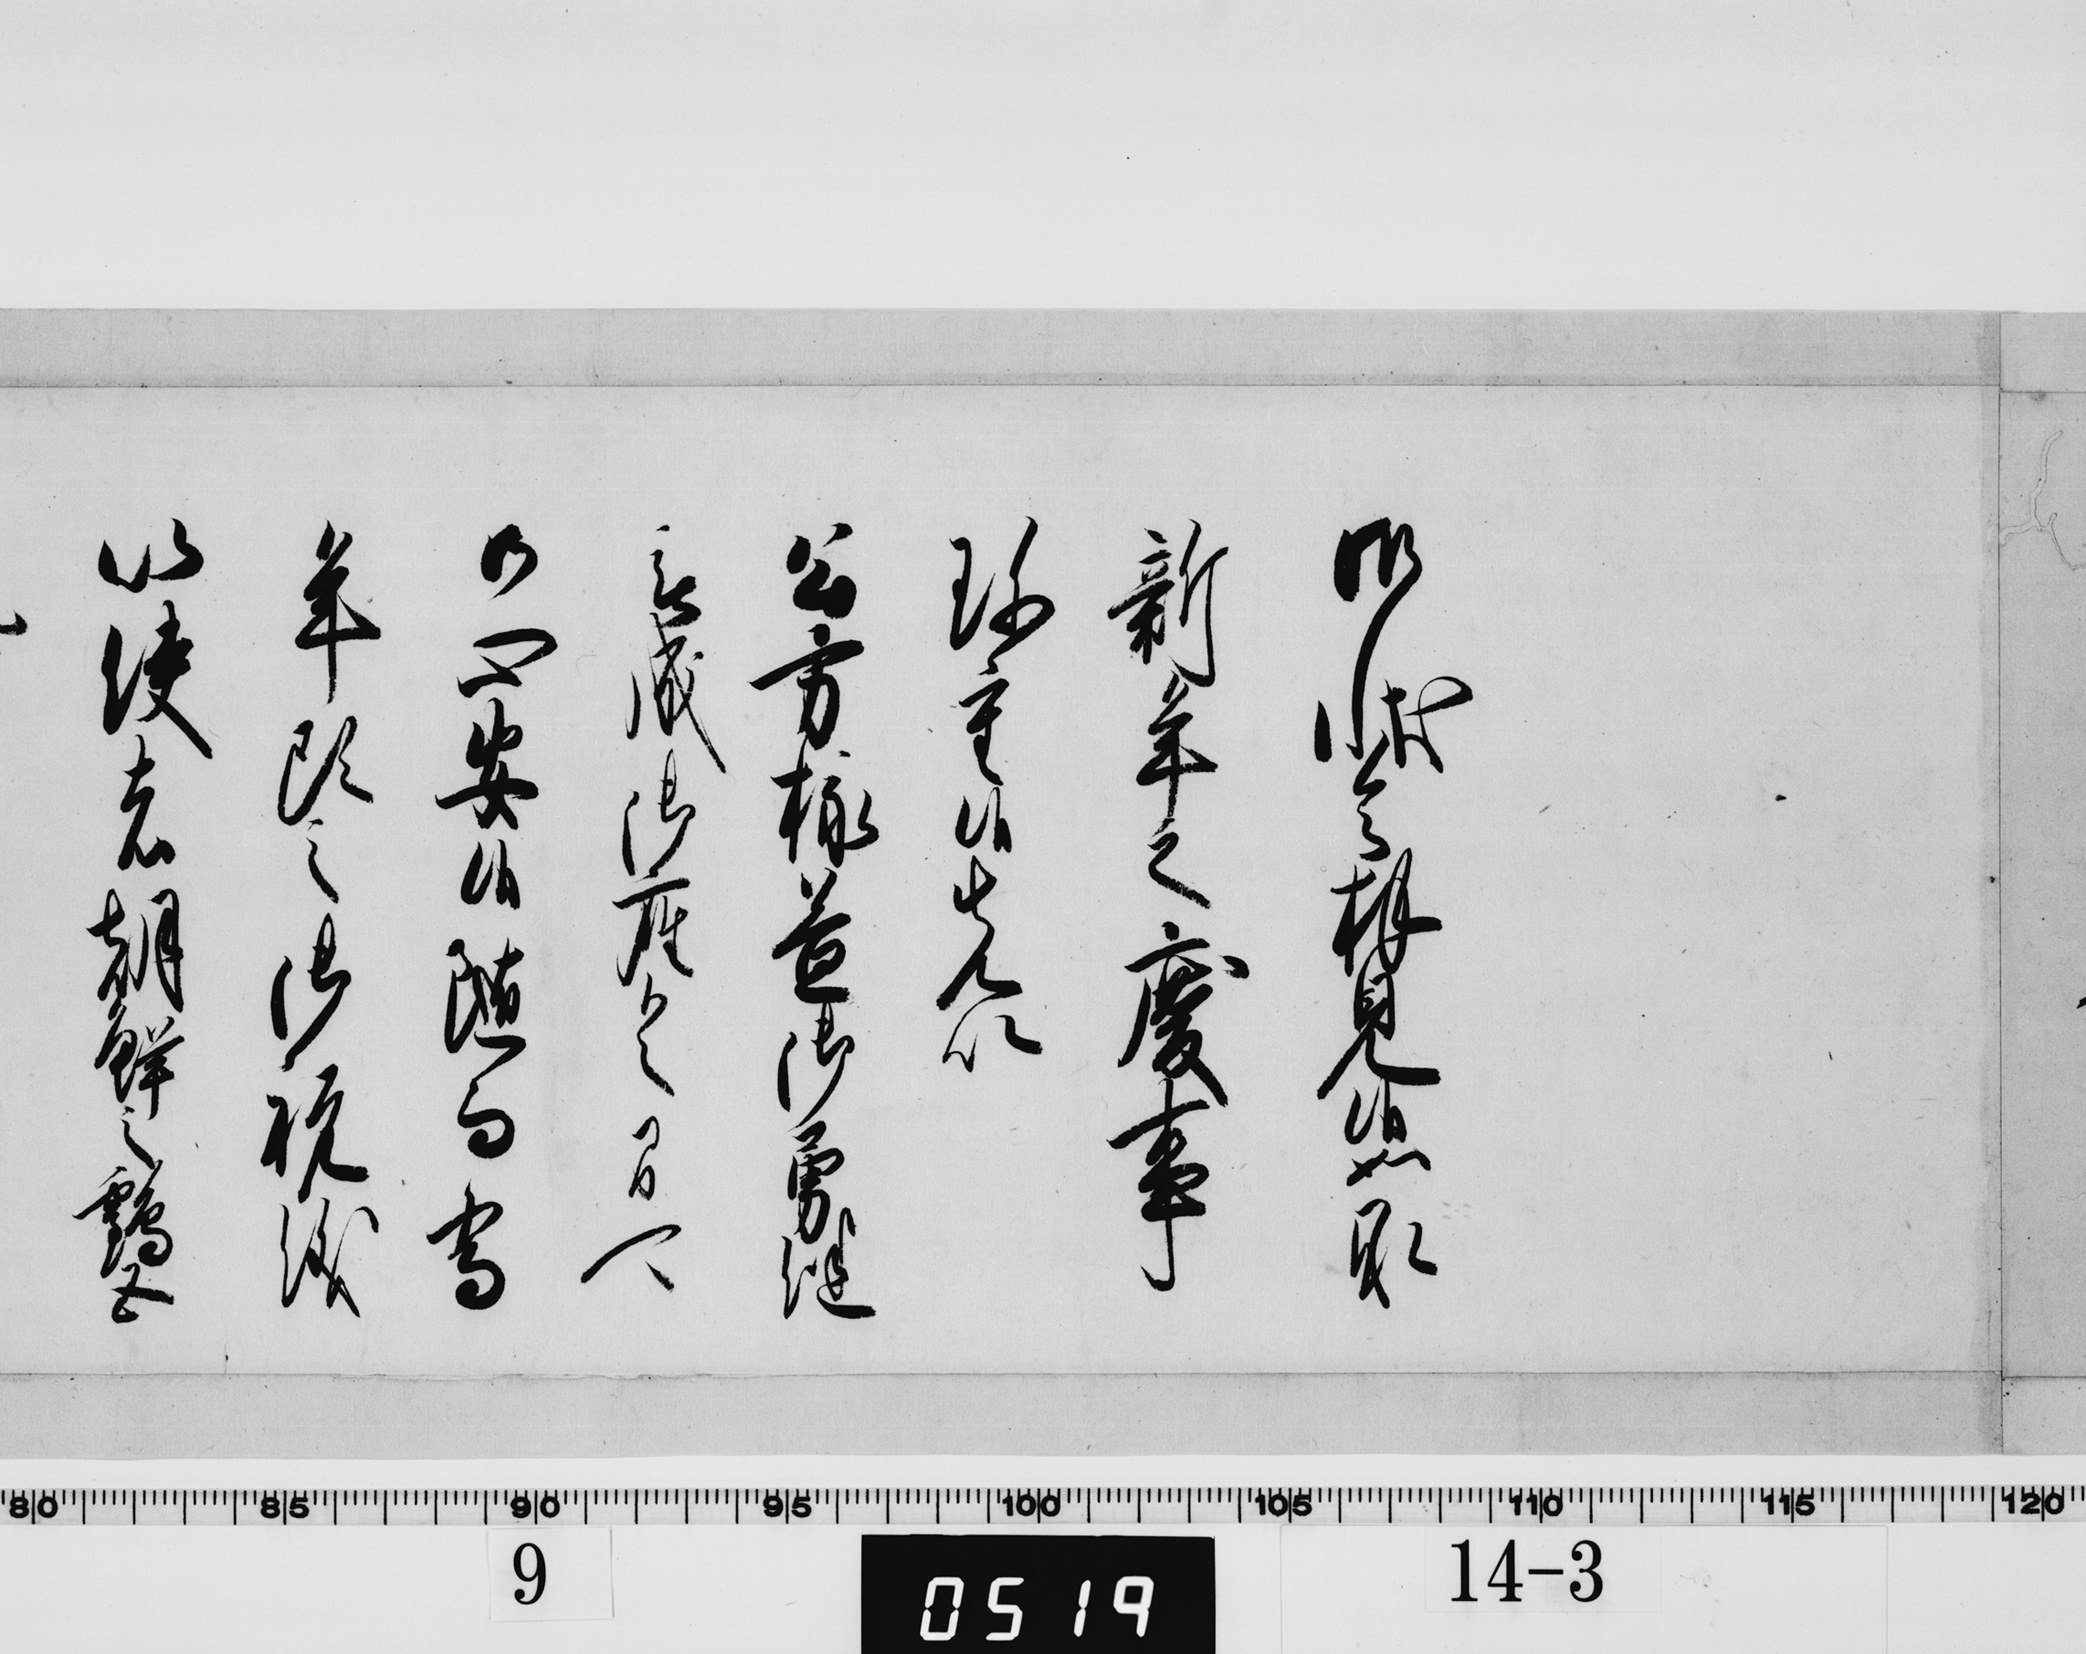 御状令拝見候如
新年之慶事
珍重候先以
公方様益御勇健
被成御座候間
御心安候随而当
年頭之御祝儀
以使者朝鮮之鷂五
80 85 90 95 100 105 110 115 120
9
0519
14-3